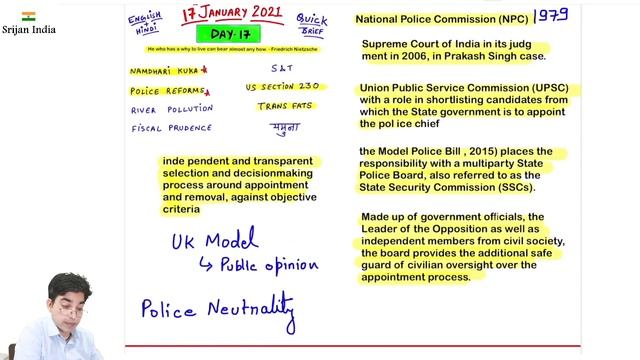 Srijan India
ENGLISH
+
HINDI
17 JANUARY 2021
DAY-17
QUICK
BRIEF
He who has a why to live can bear almost any how. - Friedrich Nietzsche
NAMDHARI KUKA
POLICE REFORMS
RIVER POLLUTION
FISCAL PRUDENCE
S&T
US SECTION 230
TRANS FATS
यमुना
inde pendent and transparent
selection and decisionmaking
process around appointment
and removal, against objective
criteria
UK Model
↳ Public opinion
Police Neutrality
National Police Commission (NPC) 1979
Supreme Court of India in its judg
ment in 2006, in Prakash Singh case.
Union Public Service Commission (UPSC)
with a role in shortlisting candidates from
which the State government is to appoint
the pol ice chief
the Model Police Bill , 2015) places the
responsibility with a multiparty State
Police Board, also referred to as the
State Security Commission (SSCs).
Made up of government officials, the
Leader of the Opposition as well as
independent members from civil society,
the board provides the additional safe
guard of civilian oversight over the
appointment process.